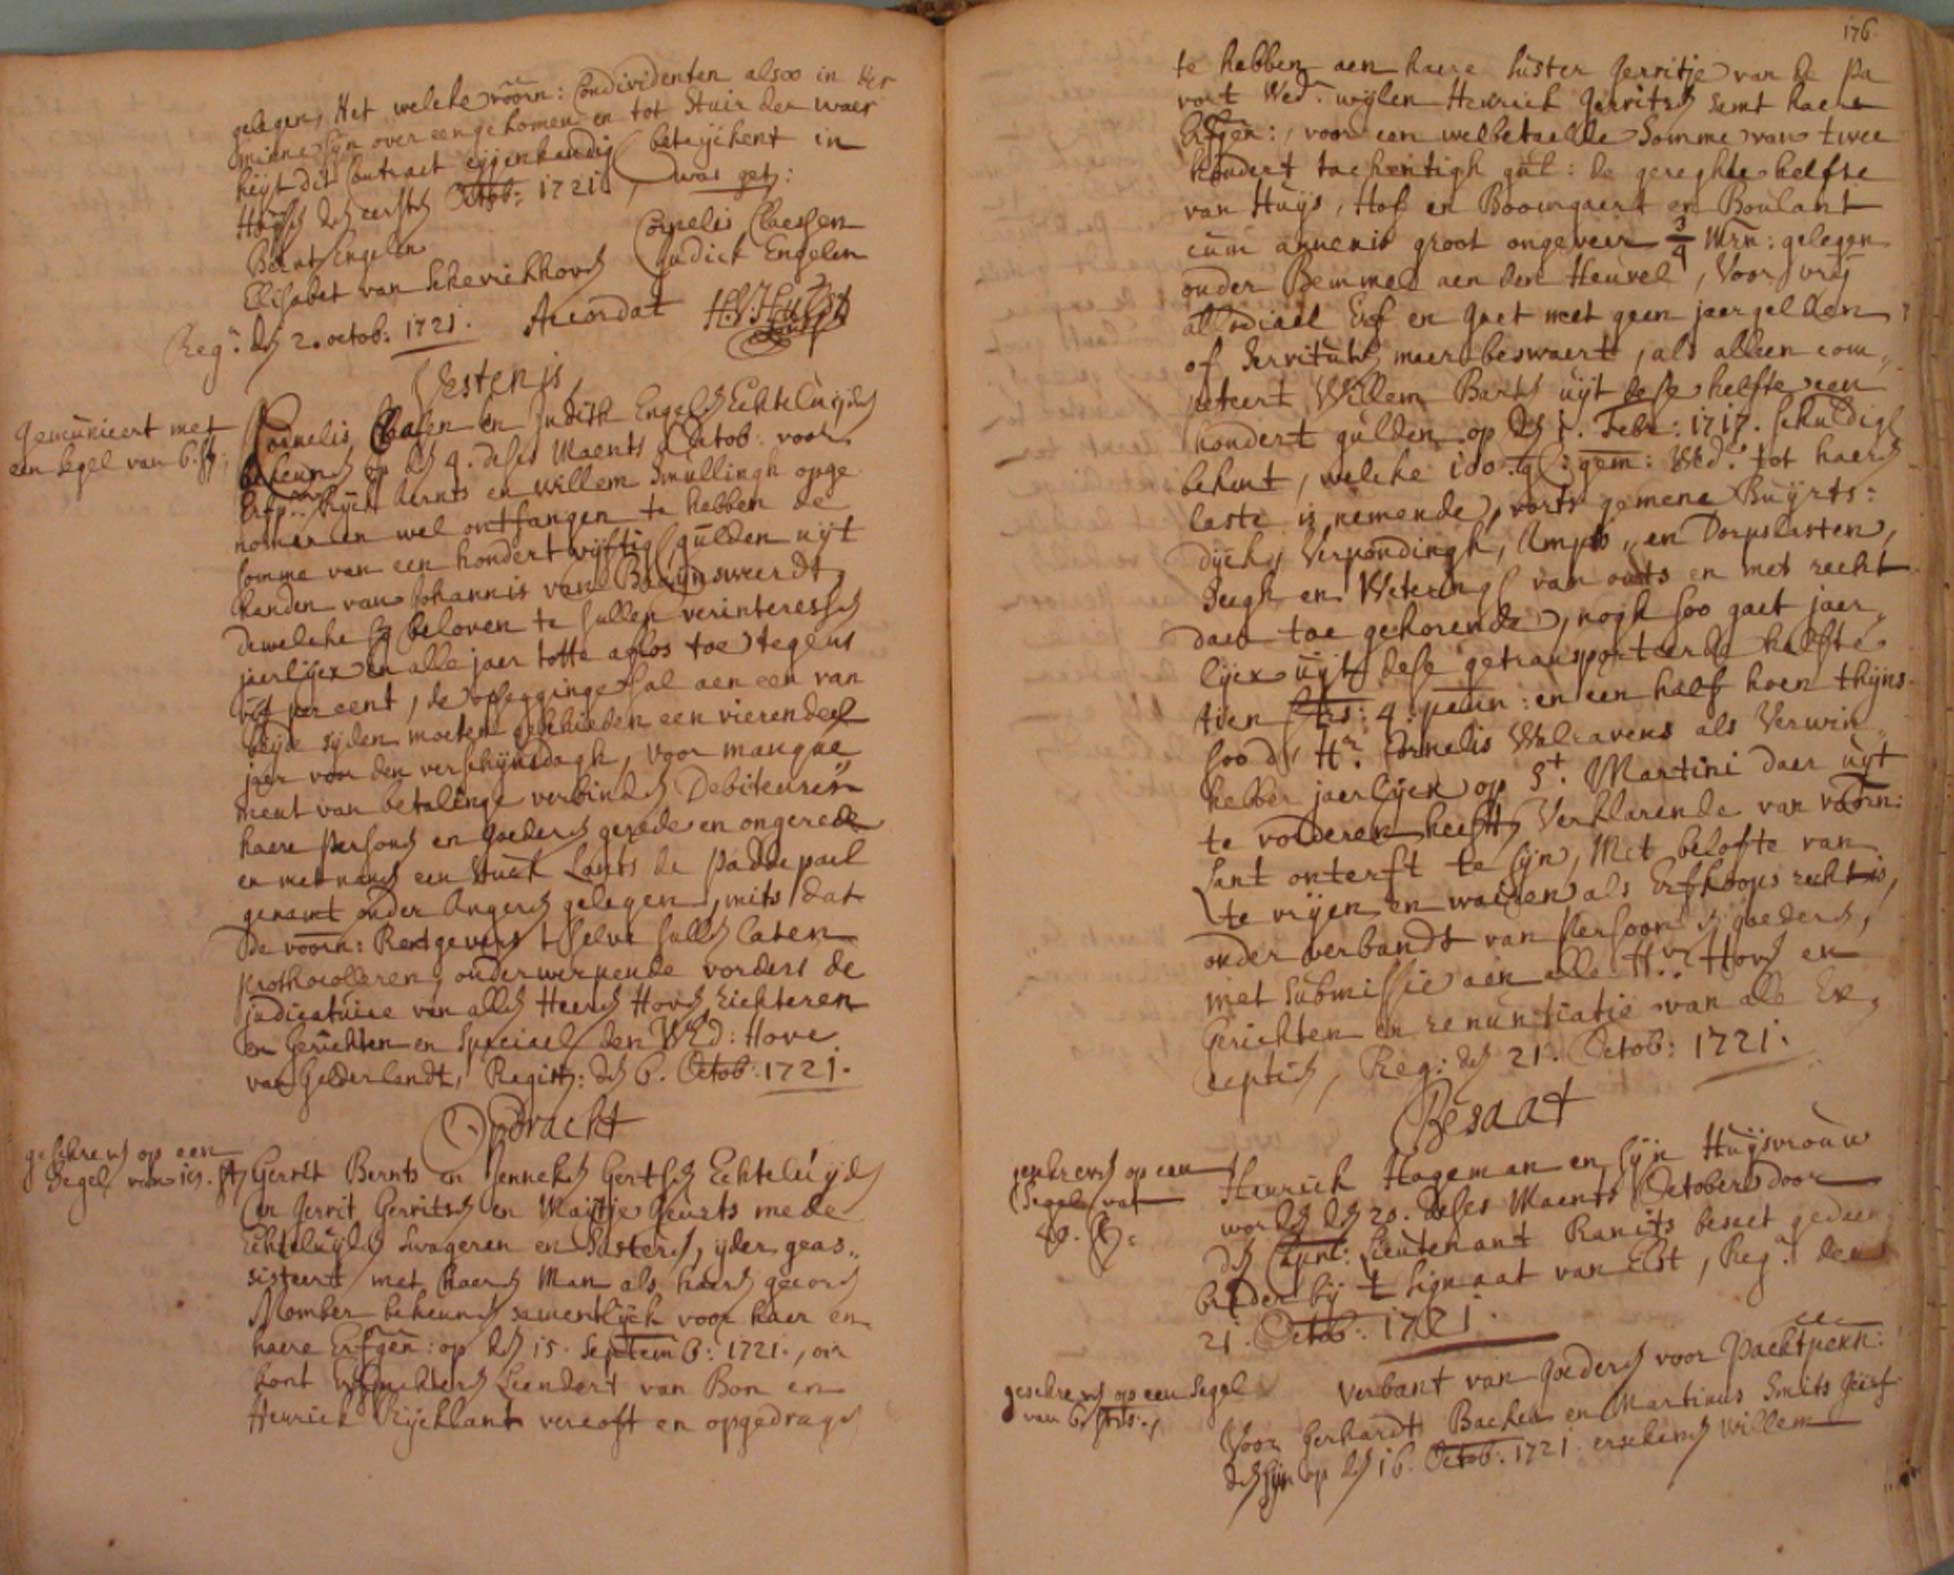 gelegen, Het welcke voorn: Condividenten alsoo in der
minne sijn over eengekomen en tot Stuir der waer
heyt dit Contract eygenhandig beteyckent in
den eersten Octob: 1721. was get:
Bernt Engelen Cornelis Claessen
Elisabet van Judick Engelen
Reg: den 2. octob: 1721. Acordat
Vestenis
Gemunieert met
een segel van 6. st:
Cornelis Clasen en Judith Engelen Echteluijden
bekennen op den 4. deses Maents Octob. voor
Erfp: Rijck Aernts en Willem Smullingh opge
nomen en wel ontfangen te hebben de
somme van een hondert vijftigh gulden uijt
handen van Johannis van
dewelcke sij beloven te sullen verinteressen
jaerlijcx en alle jaer totte aflos toe tegens
vijf per cent, de opsegginge sal aen een van
beyde sijden moeten geschieden een vierendeel
jaer voor den verschijnsdagh, voor manque
ment van betalinge verbinden Debiteuren
haere Persone en goederen gerede en ongerede
en met name een stuck Lants de Paddepael
genamt onder Angeren gelegen, mits dat
de voorn: Rentgevers t selve sullen laten
prothocolleren, onderwerpende vorders de
judicatuire van allen Heeren Hoven Richteren
en Gerichten en Speciael den Hove
van Gelderlandt, Registr: den 6. Octob: 1721.
Opdracht
geschreven op een
Segel van st
Gerrit Bernts en Jenneken Echteluijden
en Gerrit Gerritsen en Maijtje Geurts mede
Echteluijden Swageren en Susteren, yder geas
sisteert met haeren Man als haeren gecoren
Momber bekennen samentlijck voor haer en
haere Erfgen: op den 15. Septemb: 1721., oir
kont Leendert van Bon en
Henrick Rijcklant vercoft en opgedragen
176
te hebben aen haere Suster Gerritje van de Pa
vort Wed. wijlen Henrick Gerritsen samt haere
Erfgen: voor een welbetaelde Somme van twee
hondert tachentigh gul: de gereghte helfte
van Huijs, Hof en Boomgaert en Boulant
cum annexis groot ongeveer 3/4 Mrn: gelegen
onder Bemmel aen den Heuvel, Voor vrij
allodiael Erf en Goet meet geen jaer gelden
of Servituten meer beswaert, als alleen com
peteert Willem Barten uijt dese helfte een
hondert gulden op den 1. Febr: 1717. schuldig
bekent, welcke 100. gl: gem: Wed. tot haeren
laste is nemende, vorts gemene Buyrts:
Verpondingh, Ampts, en Dorpslasten,
Seegh en Wetering van outs en met recht
daer toe gehorende, nogh soo gaet jaer
lijcx uijt dese getransporteerde helfte
tien strs: 4: penn: en een half hoen thijns
soo de Hr. Cornelis Walravens als Verwin
hebber jaerlijcx op St. Martini daer uijt
te volderen heeft, Verklarende van voorn:
Lant onterft te sijn, Met belofte van
te vrijen en waeren als Erfkoops recht is,
onder verbandt van Persoon en goederen,
met Submissie aen alle Hren Hoven en
Gerichten en renuntiatie van alle Ex
ceptien, Reg: den 21. Octob: 1721.
Besaat
geschreven op een
Segel van
Henrick Hageman en sijn Huijsvrouw
worden den 20. deses Maents October door
den Lieutenant Ranits beseet gedaen
bij t Signaat van Elst, Reg: den
21. Octob: 1721.
geschreven op een Segel
van 6. strs.
Verbant van Goederen voor Pachtpenn:
Voor Gerhardt Backer en Martinus Smits
op den 16. Octob: 1721. erschenen Willem